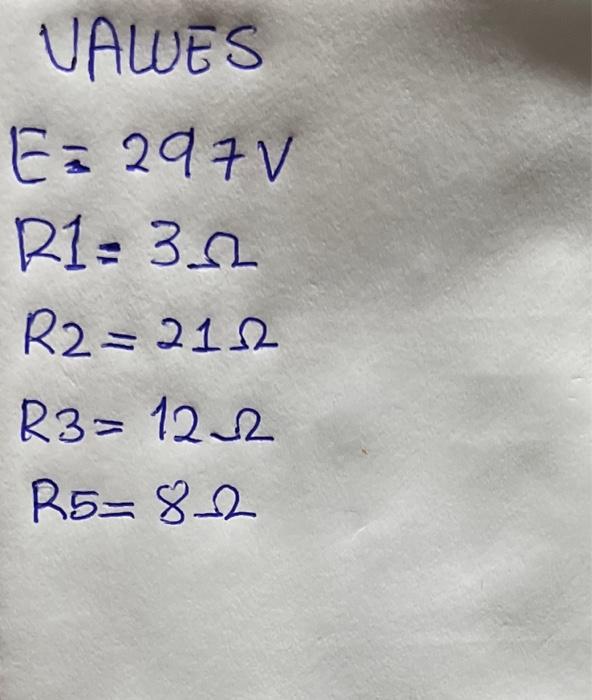 VALUES
E= 297V
R1= 3Ω
R2= 21Ω
R3= 12Ω
R5= 8Ω